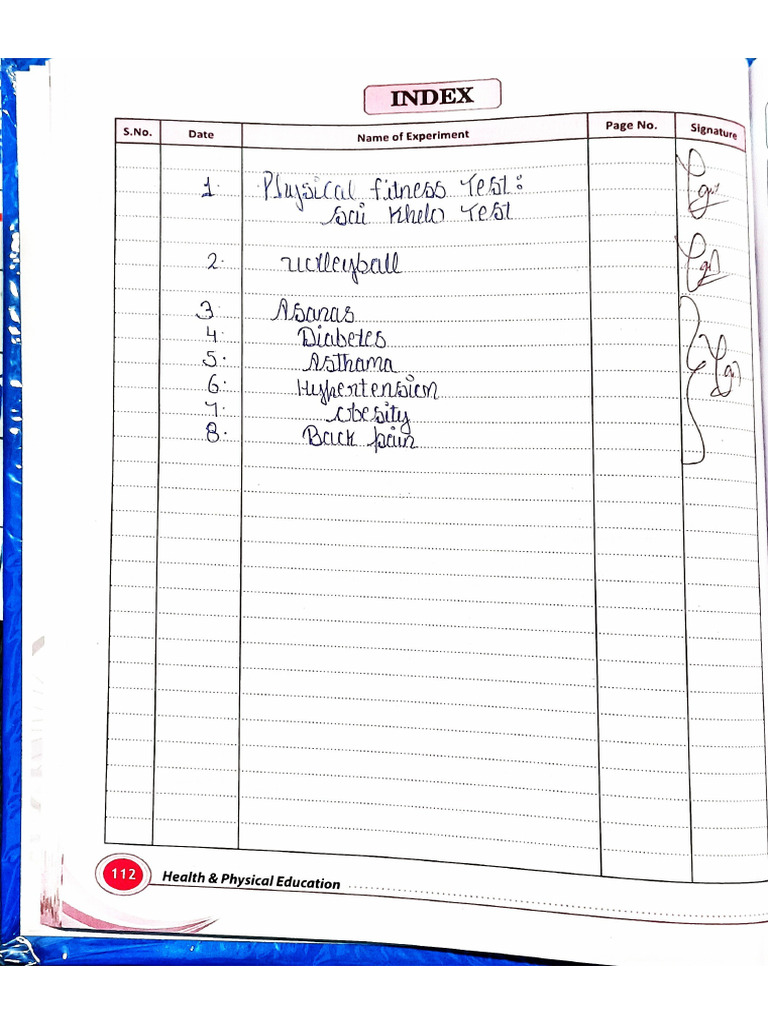 INDEX
S.No. Date Name of Experiment Page No. Signature
1. Physical fitness Test:
Sai Khelo Test
2. Volleyball
3 Asanas
4 Diabetes
5. Asthama
6. Hypertension
7. Obesity
8. Back pain
112 Health & Physical Education